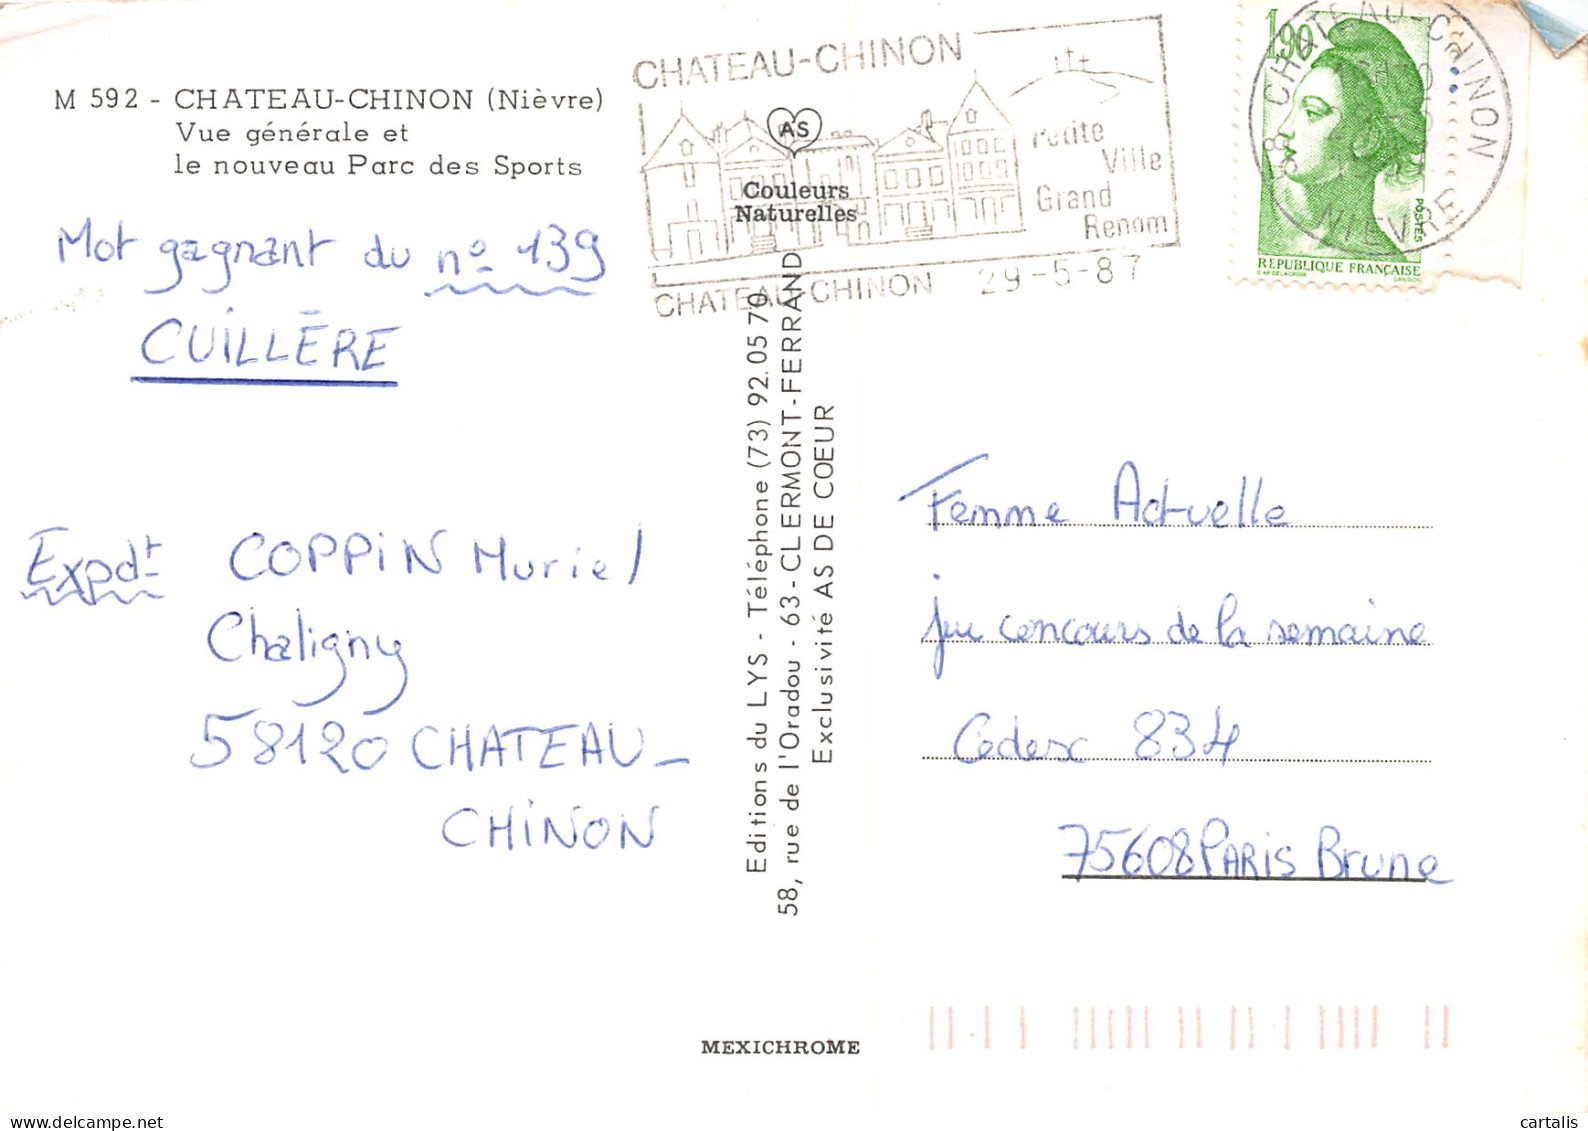 M 592 - CHATEAU-CHINON (Nièvre)
Vue générale et
le nouveau Parc des Sports
Mot gagnant du nº 139
CUILLÈRE
Expdt COPPIN Muriel
Chaligny
58120 CHATEAU-
CHINON
CHATEAU-CHINON
Petite
Ville
Grand
Renom
CHATEAU-CHINON 29-5-87
AS
Couleurs
Naturelles
Editions du LYS - Téléphone (73) 92.05 70
58, rue de l'Oradou - 63 - CLERMONT-FERRAND
Exclusivité AS DE COEUR
MEXICHROME
1,90
POSTES
REPUBLIQUE FRANÇAISE
CHATEAU-CHINON
NIEVRE
Femme Actuelle
jeu concours de la semaine
Cedex 834
75608 PARIS Brune
cartalis